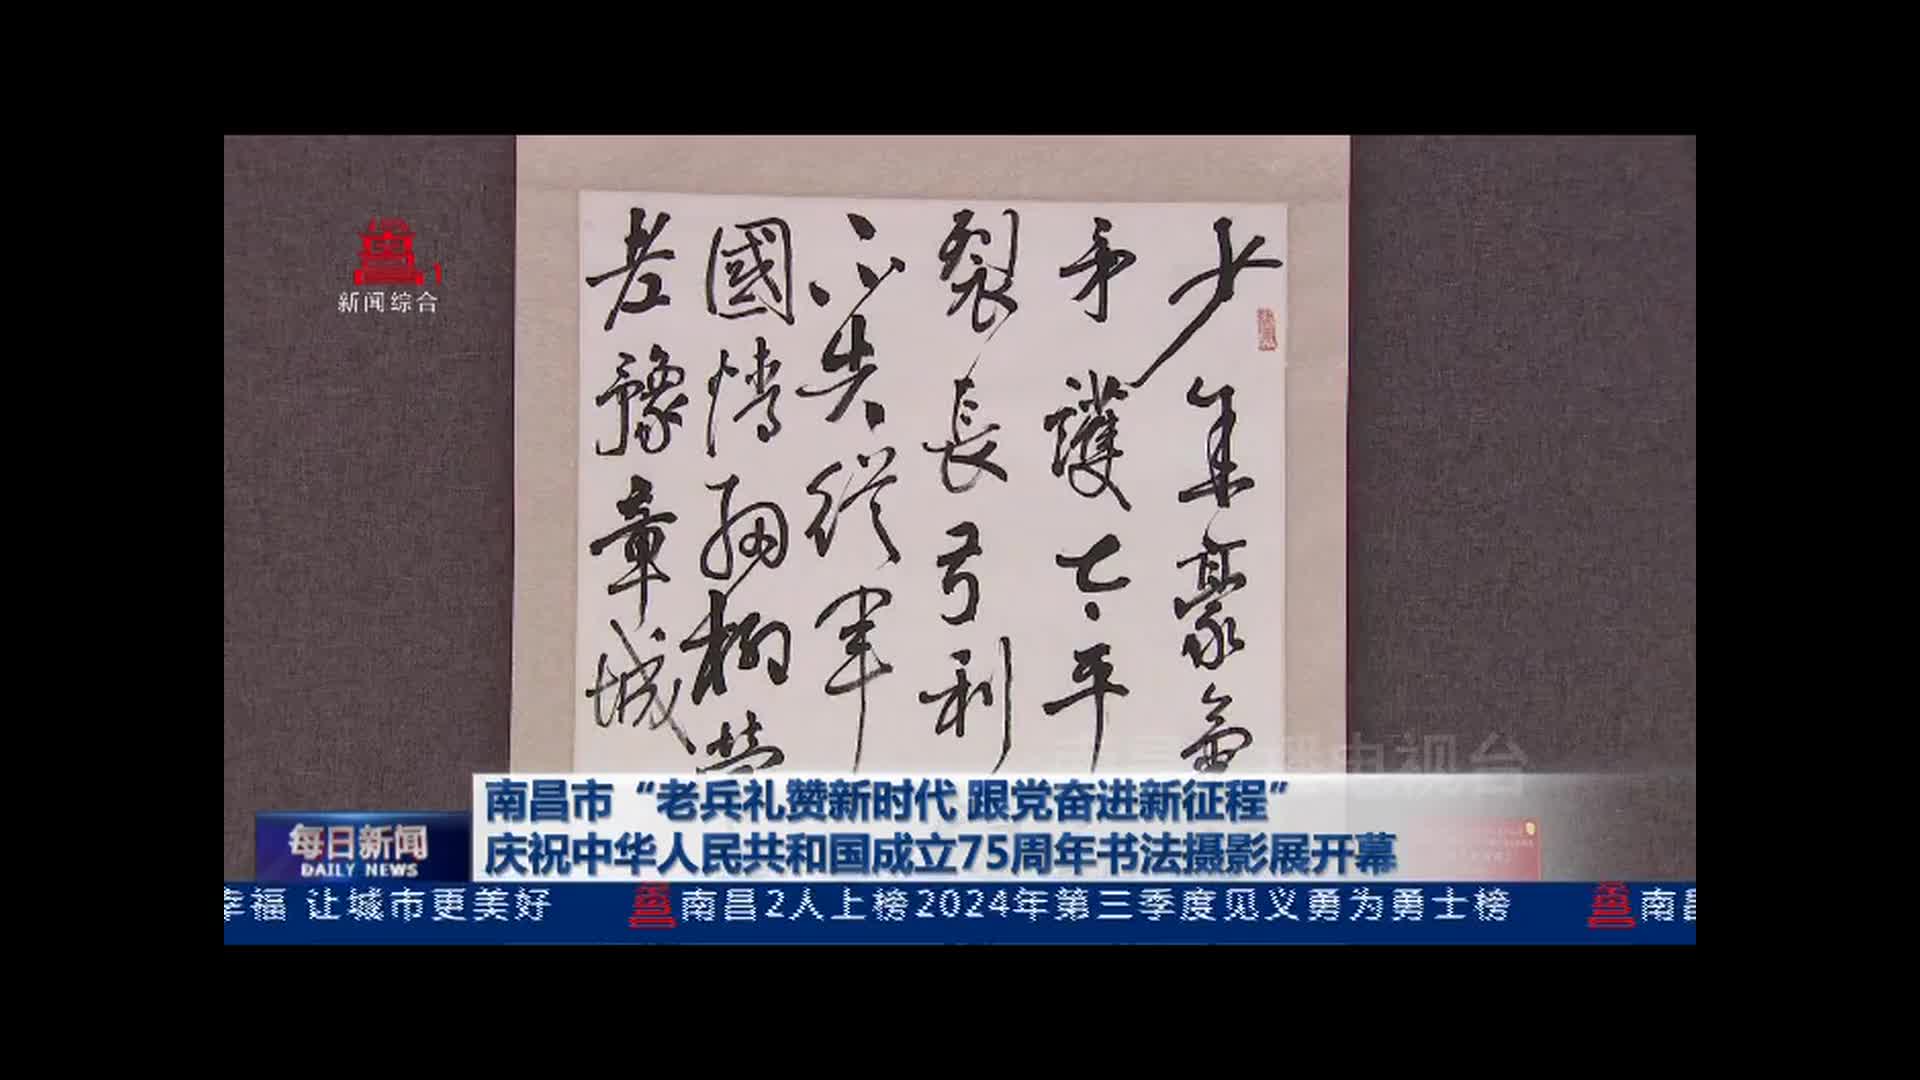 少年豪氣
矛護太平
裂長弓利
不失從軍
國情細柳營
老豫章城
1
新闻综合
南昌广播电视台
南昌市“老兵礼赞新时代 跟党奋进新征程”
庆祝中华人民共和国成立75周年书法摄影展开幕
每日新闻
DAILY NEWS
幸福 让城市更美好 南昌2人上榜2024年第三季度见义勇为勇士榜 南昌